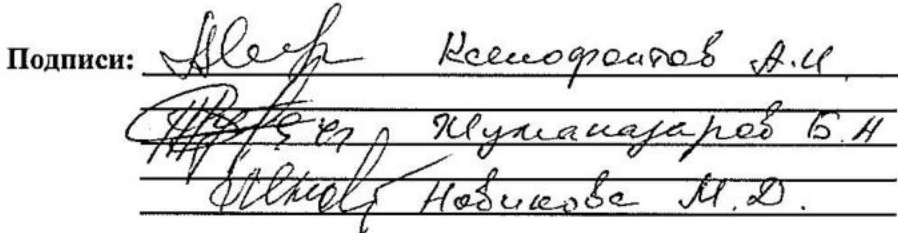 Подписи: Ксенофонтов А.И.
Жуманазаров Б.Н
Новикова М.Д.